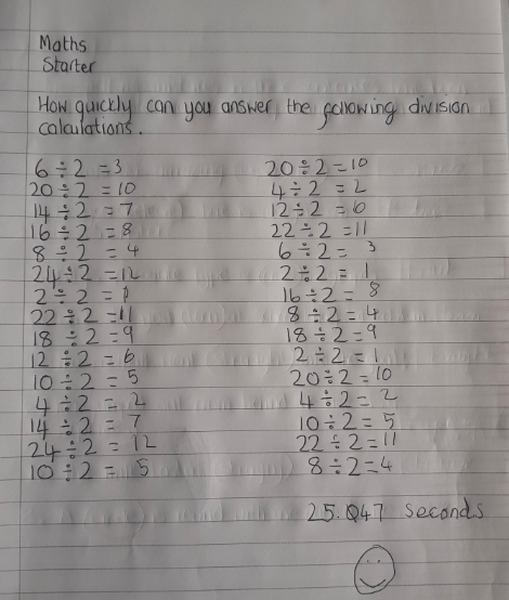 Maths
Starter
How quickly can you answer the following division
calculations.
6 ÷ 2 = 3
20 ÷ 2 = 10
14 ÷ 2 = 7
16 ÷ 2 = 8
8 ÷ 2 = 4
24 ÷ 2 = 12
2 ÷ 2 = 1
22 ÷ 2 = 11
18 ÷ 2 = 9
12 ÷ 2 = 6
10 ÷ 2 = 5
4 ÷ 2 = 2
14 ÷ 2 = 7
24 ÷ 2 = 12
10 ÷ 2 = 5
20 ÷ 2 = 10
4 ÷ 2 = 2
12 ÷ 2 = 6
22 ÷ 2 = 11
6 ÷ 2 = 3
2 ÷ 2 = 1
16 ÷ 2 = 8
8 ÷ 2 = 4
18 ÷ 2 = 9
2 ÷ 2 = 1
20 ÷ 2 = 10
4 ÷ 2 = 2
10 ÷ 2 = 5
22 ÷ 2 = 11
8 ÷ 2 = 4
25.047 seconds